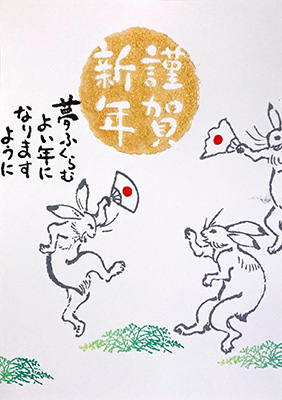 謹賀
新年
夢ふくらむ
よい年に
なります
ように